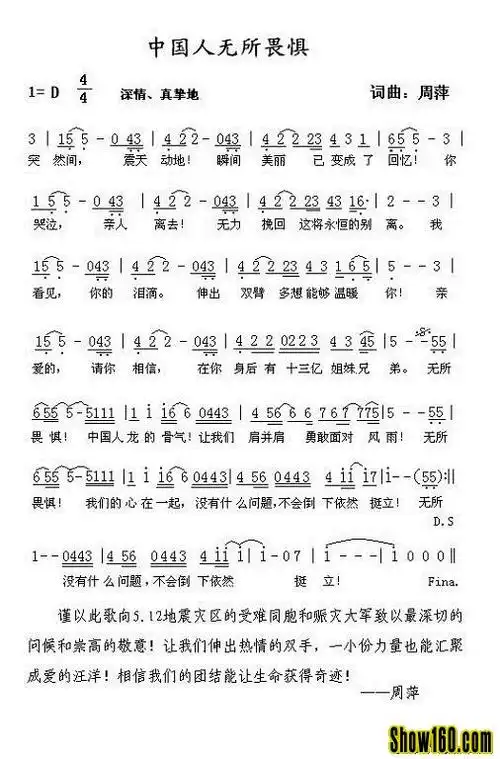 中国人无所畏惧
1= D 4/4 深情、真挚地 词曲：周萍
3 | 155 - 043 | 422 - 043 | 422 423 431 | 655 - 3 |
突 然间， 震天 动地！ 瞬间 美丽 已 变成了 回忆！ 你
155 - 043 | 422 - 043 | 422 423 43 16· | 5 - - 3 |
哭泣， 亲人 离去！ 无力 挽回 这将永恒的别 离。 我
155 - 043 | 422 - 043 | 422 423 431 65 | 5 - - 3 |
看见， 你的 泪滴。 伸出 双臂 多想能够温暖 你！ 亲
155 - 043 | 422 - 043 | 422 0223 43 45 | 5 - - 55 |
爱的， 请你 相信， 在你 身后有 十三亿 姐妹兄 弟。 无所
655 5 - 5111 | 1 1 166 0443 | 4 56 6 6 767 775 | 5 - - 55 |
畏惧！ 中国人龙 的 骨气！让我们 肩并肩 勇敢面对 风雨！ 无所
655 5 - 5111 | 1 1 166 0443 | 4 56 0443 4 11 17 | 1 - - (55) :||
畏惧！ 我们的心在一起，没有什么问题，不会倒 下依然 挺立！ 无所
D.S
1 - - 0443 | 4 56 0443 4 11 1 | 1 - 07 | 1 - - - | 1 0 0 0 ||
没有什么问题，不会倒 下依然 挺 立！ Fina.
谨以此歌向5.12地震灾区的受难同胞和赈灾大军致以最深切的
问候和崇高的敬意！让我们伸出热情的双手，一小份力量也能汇聚
成爱的汪洋！相信我们的团结能让生命获得奇迹！
——周萍
Show160.com